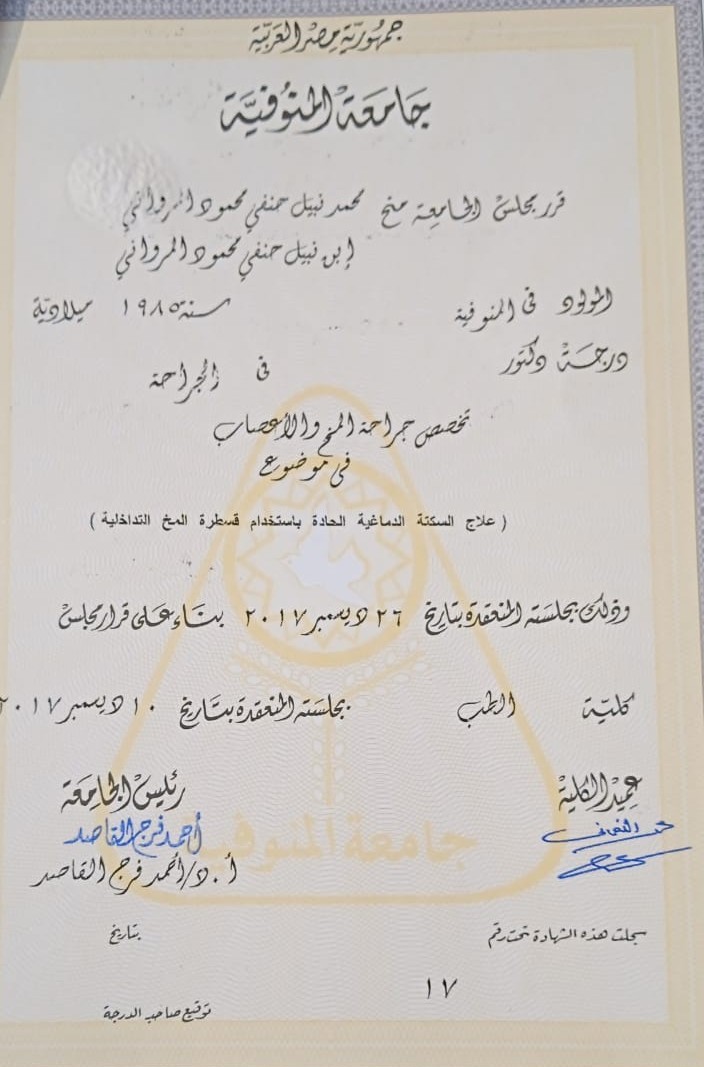 جمهورية مصر العربية
جامعة المنوفية
قرر مجلس الجامعة منح محمد نبيل حنفي محمود المرواني
إبن نبيل حنفي محمود المرواني
المولود في المنوفية سنة ١٩٨٥ ميلادية
درجة دكتور في الجراحة
تخصص جراحة المخ والأعصاب
في موضوع
( علاج السكتة الدماغية الحادة باستخدام قسطرة المخ التداخلية )
وذلك بجلسته المنعقدة بتاريخ ٢٦ ديسمبر ٢٠١٧ بناء على قرار مجلس
كلية الطب بجلسته المنعقدة بتاريخ ١٠ ديسمبر ٢٠١٧
عميد الكلية رئيس الجامعة
أحمد فرج القاصد
أ.د/أحمد فرج القاصد
جامعة المنوفية
سجلت هذه الشهادة تحت رقم بتاريخ
١٧
توقيع صاحب الدرجة